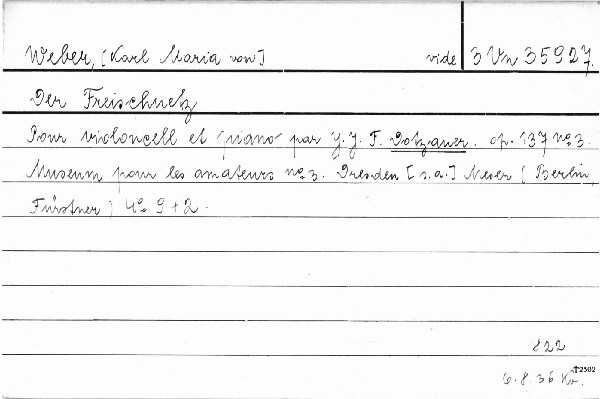 Weber, [Karl Maria von] vide 3 Vn 35927.
Der Freischuetz
Pour violoncell et piano par J. J. F. Dotzauer. op. 137 no 3.
Museum pour les amateurs no 3. Dresden [s.a.] Meser (Berlin,
Fürstner) 4° 9 + 2.
822
6.8.36 Kr. 2502